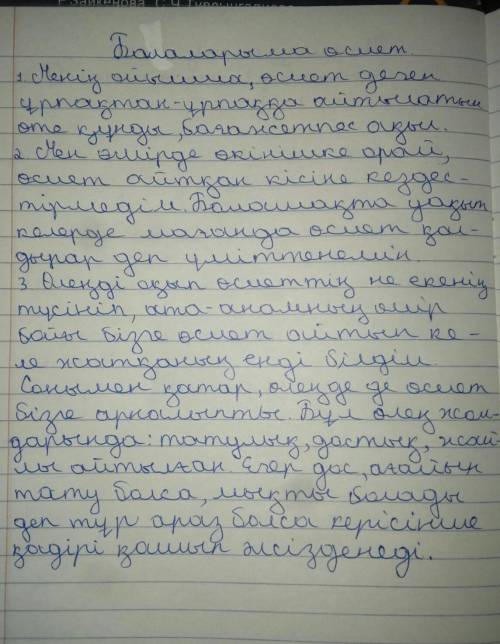 Балаларыма өсиет
1 Менің ойымша, өсиет деген
ұрпақтан-ұрпаққа айтылатын
өте құнды, бағажетпес ақыл.
2 Мен өмірде өкінішке орай,
өсиет айтқан кісіне кездес-
тірмедім. Болашақта уақыт
келерде мағанда өсиет қал-
дырар деп үміттенемін.
3 Өлеңді оқып өсиеттің не екенің
түсініп, ата-анамның өмір
бойы бізге өсиет айтып ке-
ле жатқаның енді білдім.
Сонымен қатар, өлеңде де өсиет
бізге арналыпты. Бұл өлең жол-
дарында: татулық, достық, жай-
лы айтылған. Егер дос, ағайын
тату болса, мықты болады
деп тұр араз болса керісінше
қадірі қашып әлсізденеді.